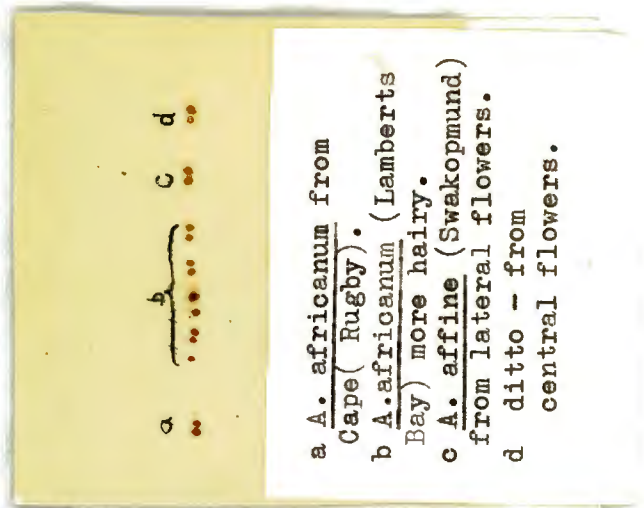 a b c d
a A. africanum from
Cape( Rugby).
b A.africanum (Lamberts
Bay) more hairy.
c A. affine (Swakopmund)
from lateral flowers.
d ditto - from
central flowers.